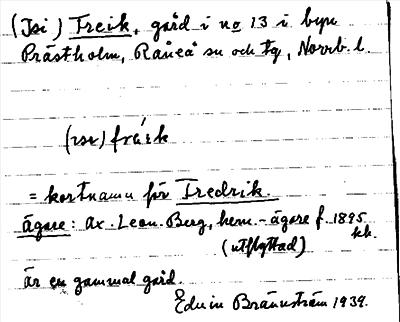 (Isi) Freik, gård i no 13 i byn
Prästholm, Råneå sn och tg, Norrb. l.
(isi) frɛ́ik
= kortnamn för Fredrik.
ägare: Ax. Leon. Berg, hem.-ägare f. 1895
(utflyttad)
är en gammal gård.
Edvin Brännström 1939.